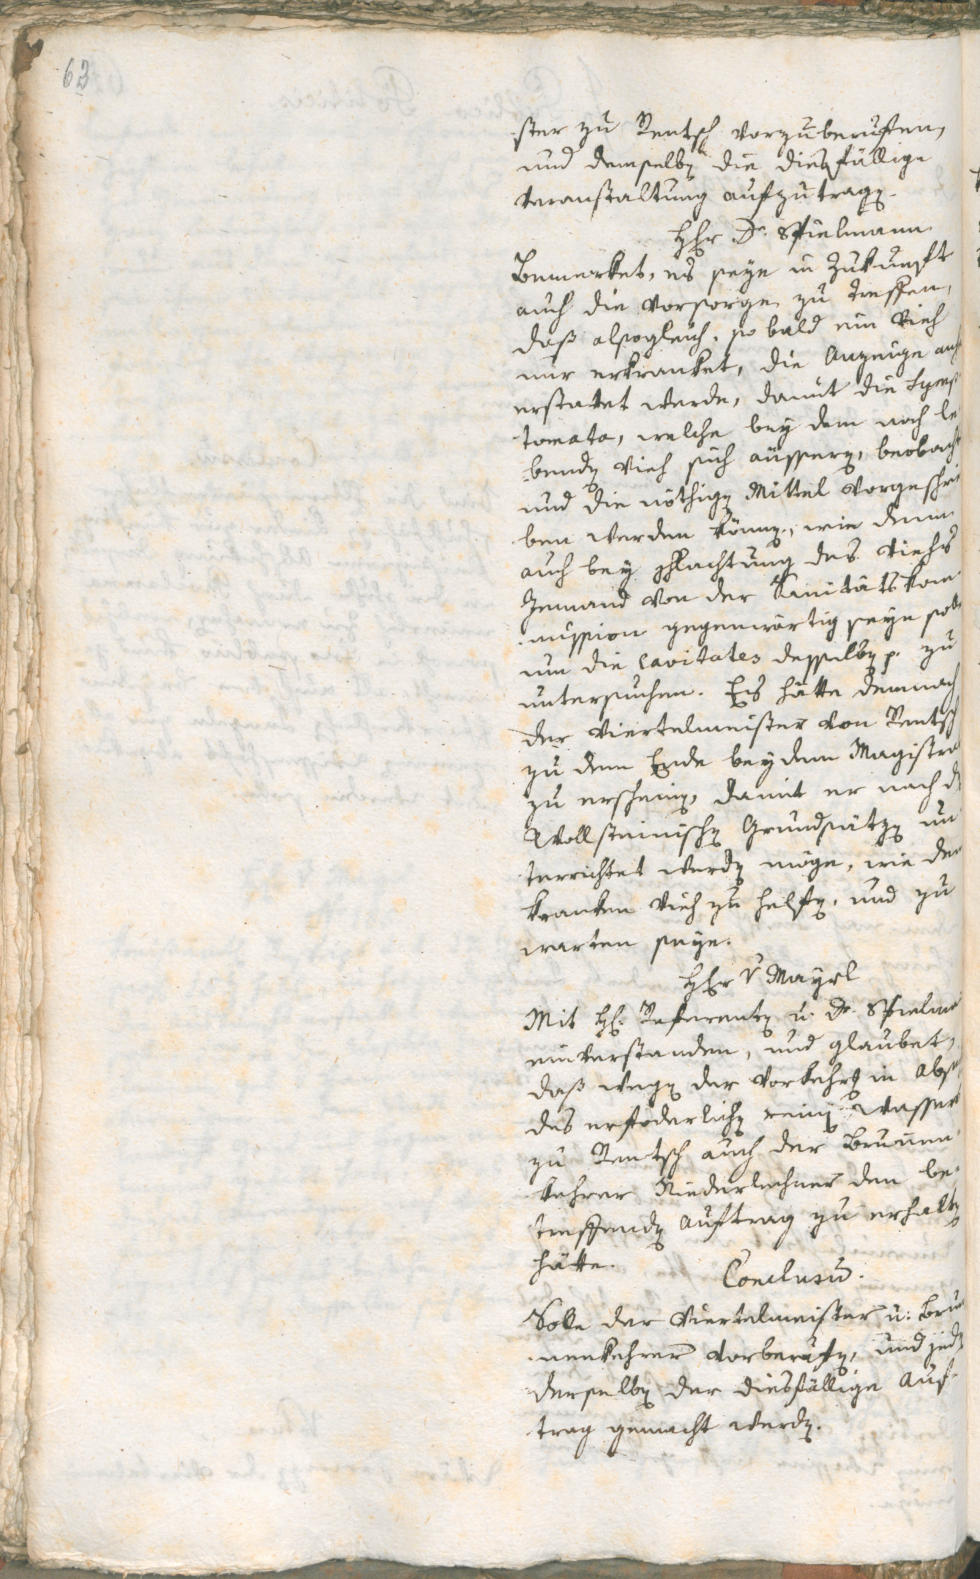 63
ster zu Rentsch vorzuberuffen,
und demselben die diesfällige
Veranstaltung aufzutragen.
HEr Dr. Spielmann
Bemerket, es seye in Zukunft
auch die Vorsorge zu treffen,
daß alsogleich, so bald ein Vieh
nur erkranket, die Anzeige an
erstattet werde, damit die Symp
tomata, welche bey dem noch le
benden Vieh sich äussern, beobach
und die nöthigen Mittel vorgeschri
ben werden können, wie denn
auch bey Schlachtung des Viehs
Jemand von der Sanitätskom
mission gegenwärtig seye
um die cavitates desselben p. zu
untersuchen. Es hätte demnach
der Viertelmeister von Rentsch
zu dem Ende bey dem Magistra
zu erscheinen, damit er nach d
Wollsteinischen Grundsätzen un
terrichtet werden möge, wie dem
kranken Vieh zu helfen, und zu
warten seye.
HEr v Mayrl
Mit H: Referenten u. Dr. Spielma
einverstanden, und glaubet,
daß wegen der Vorkehrg in Abse
des erfoderlichen reinen Wassers
zu Rentsch auch der Brunnen
kehrer Niederlechner den be
treffenden Auftrag zu erhalten
hätte.
Conclusum.
Solle der Viertelmeister u: Bru
nenkehrer vorberufen, und jeden
derselben der diesfällige Auf
trag gemacht werden.